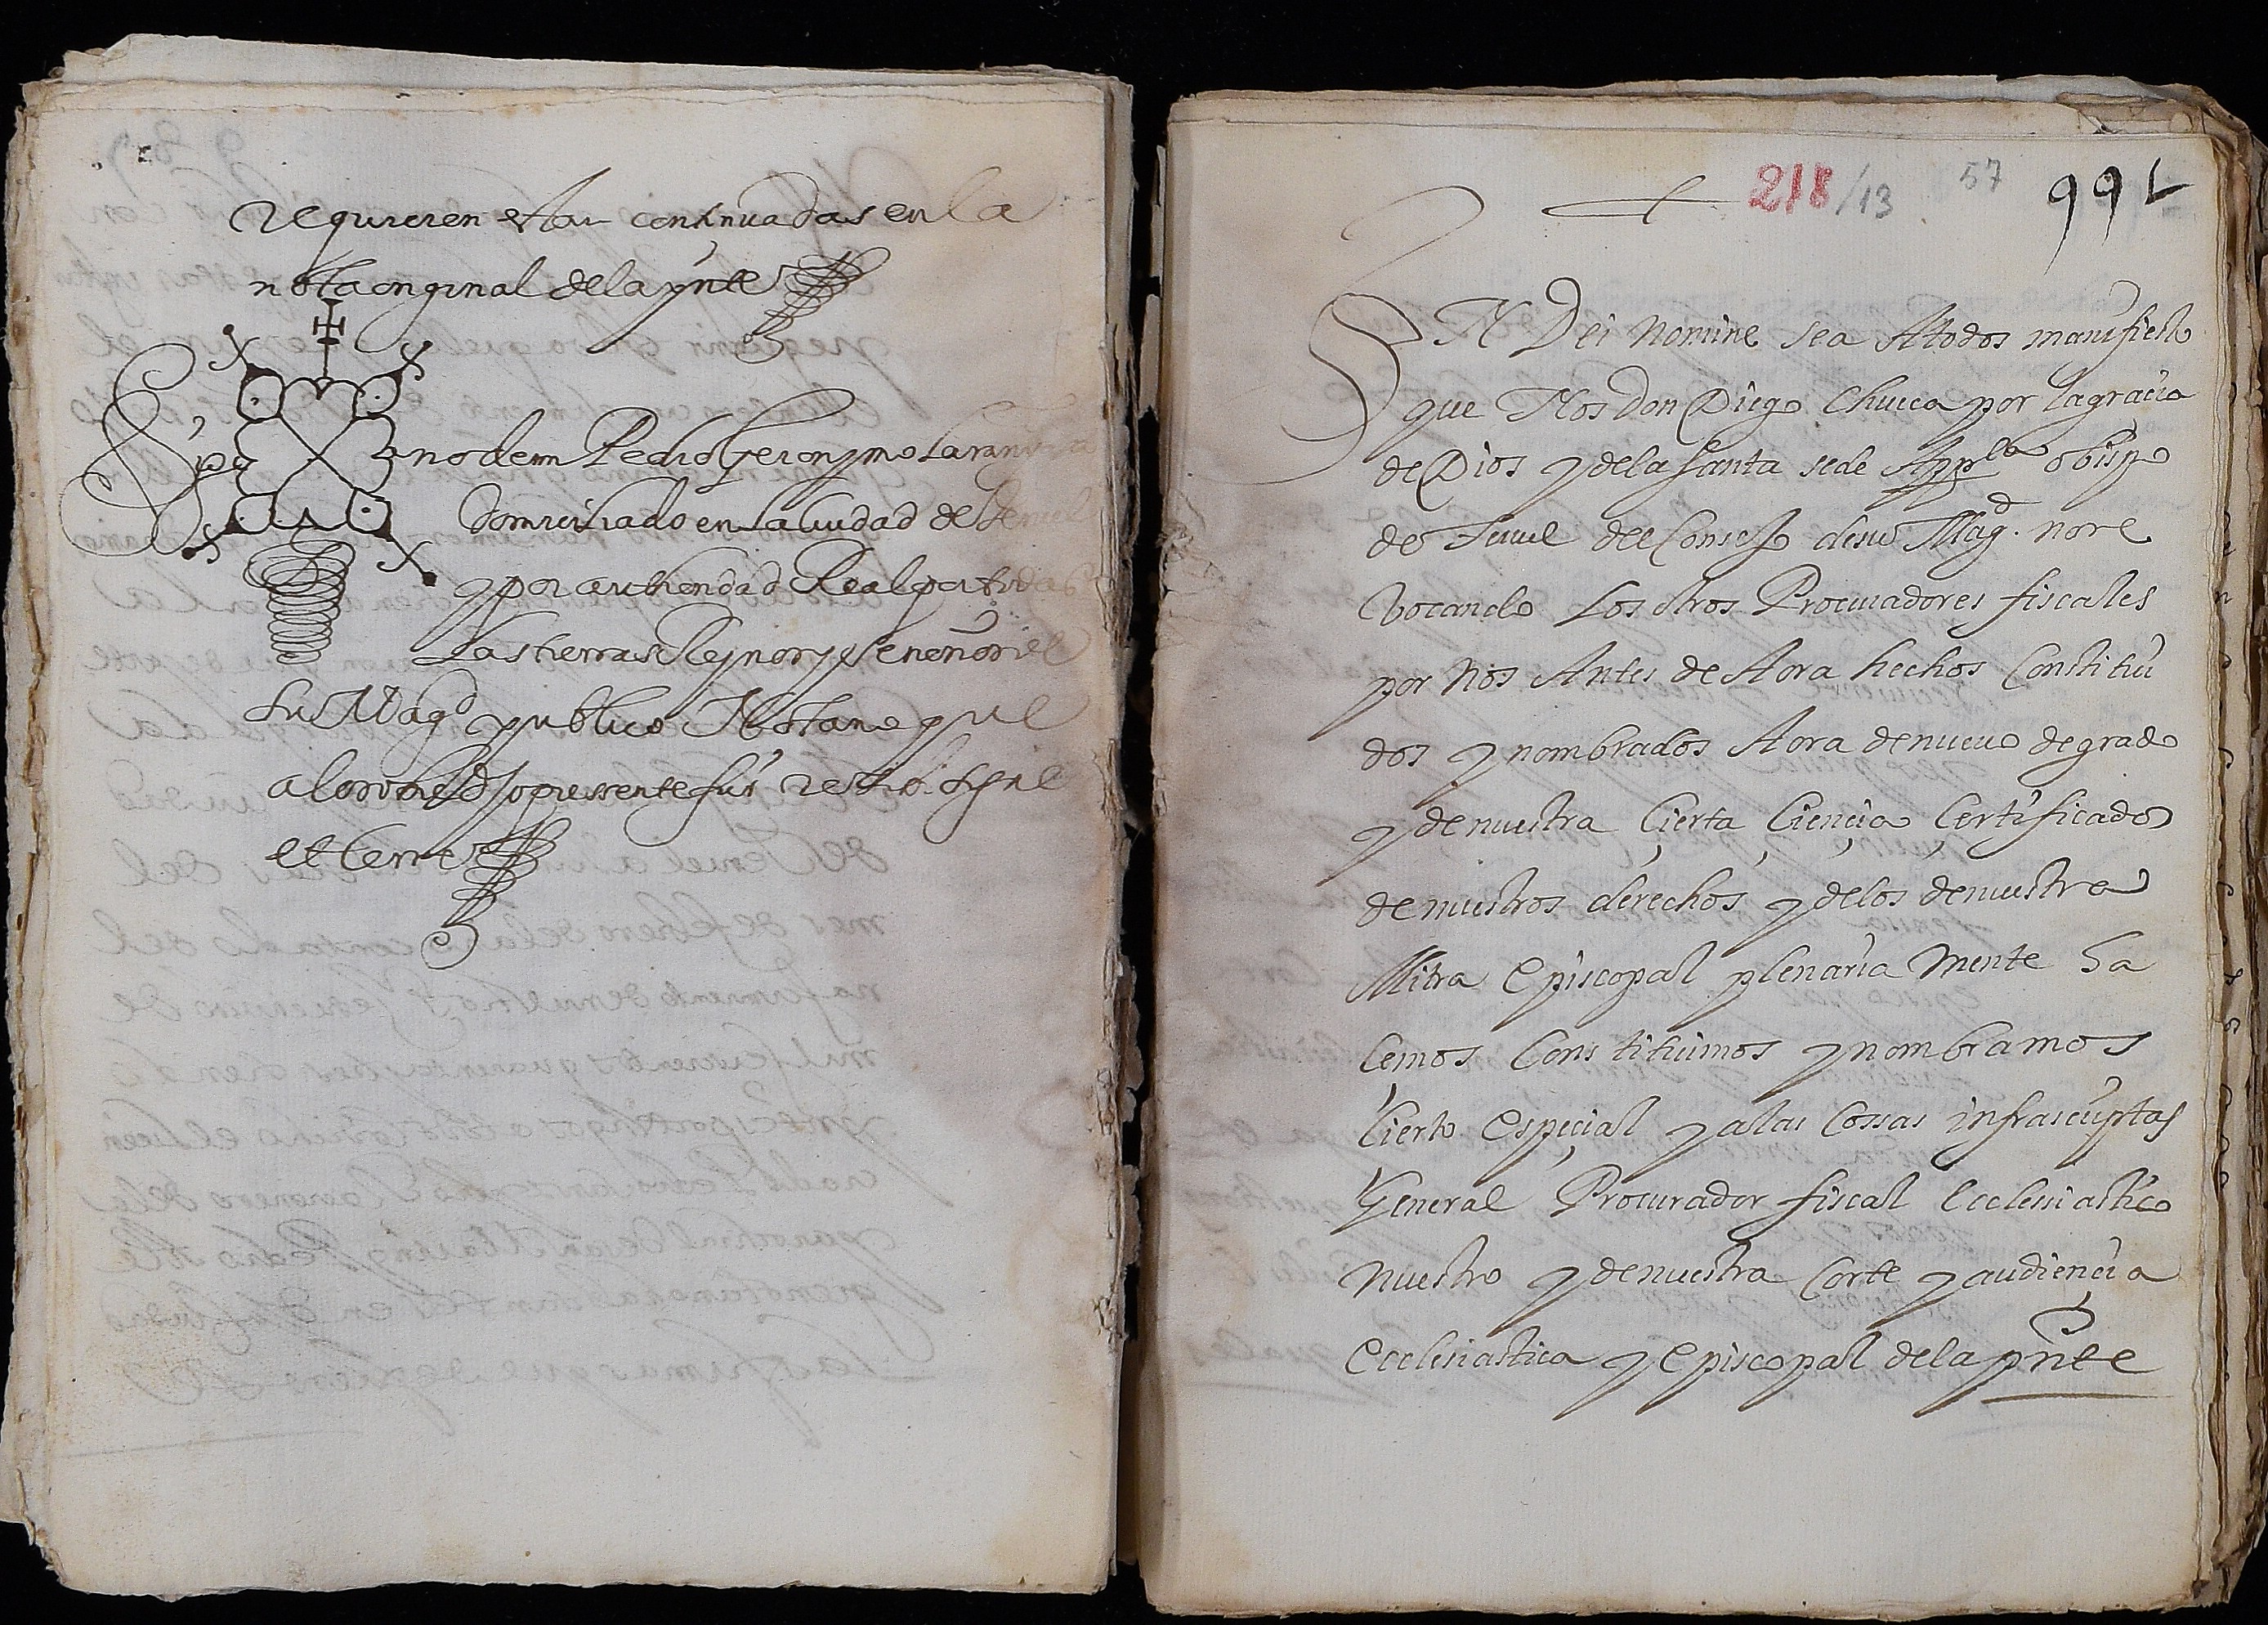 requieren estar continuadas en la
nota original de la pnte
Sig no de mi Pedro Geronymo
domiciliado en la ciudad de Teruel
y por authoridad Real por todas
las tierras Reynos y Señorios de
su Magd publico Notario que
a lo sobredho pressente fui
et cerre
218/13 57 991
IN Dei Nomine sea A todos manifiesto
que Nos Don Diego Chueca por la gracia
de Dios y de la Santa sede Appca obispo
de Teruel del Consejo de su Magd. no re
vocando Los otros Procuradores fiscales
por Nos Antes de Aora hechos Constitui
dos y nombrados Aora de nuevo de grado
y de nuestra Çierta Çiençia Çertificados
de nuestros derechos y de los de nuestra
Mitra Episcopal plenaria Mente ha
Cemos Constituimos y nombramos
Cierto Espeçial y a las Cossas infrascriptas
General Procurador fiscal Ecclesiastico
Nuestro y de nuestra Corte y audiençia
Ecclesiastica y Episcopal de la pnte